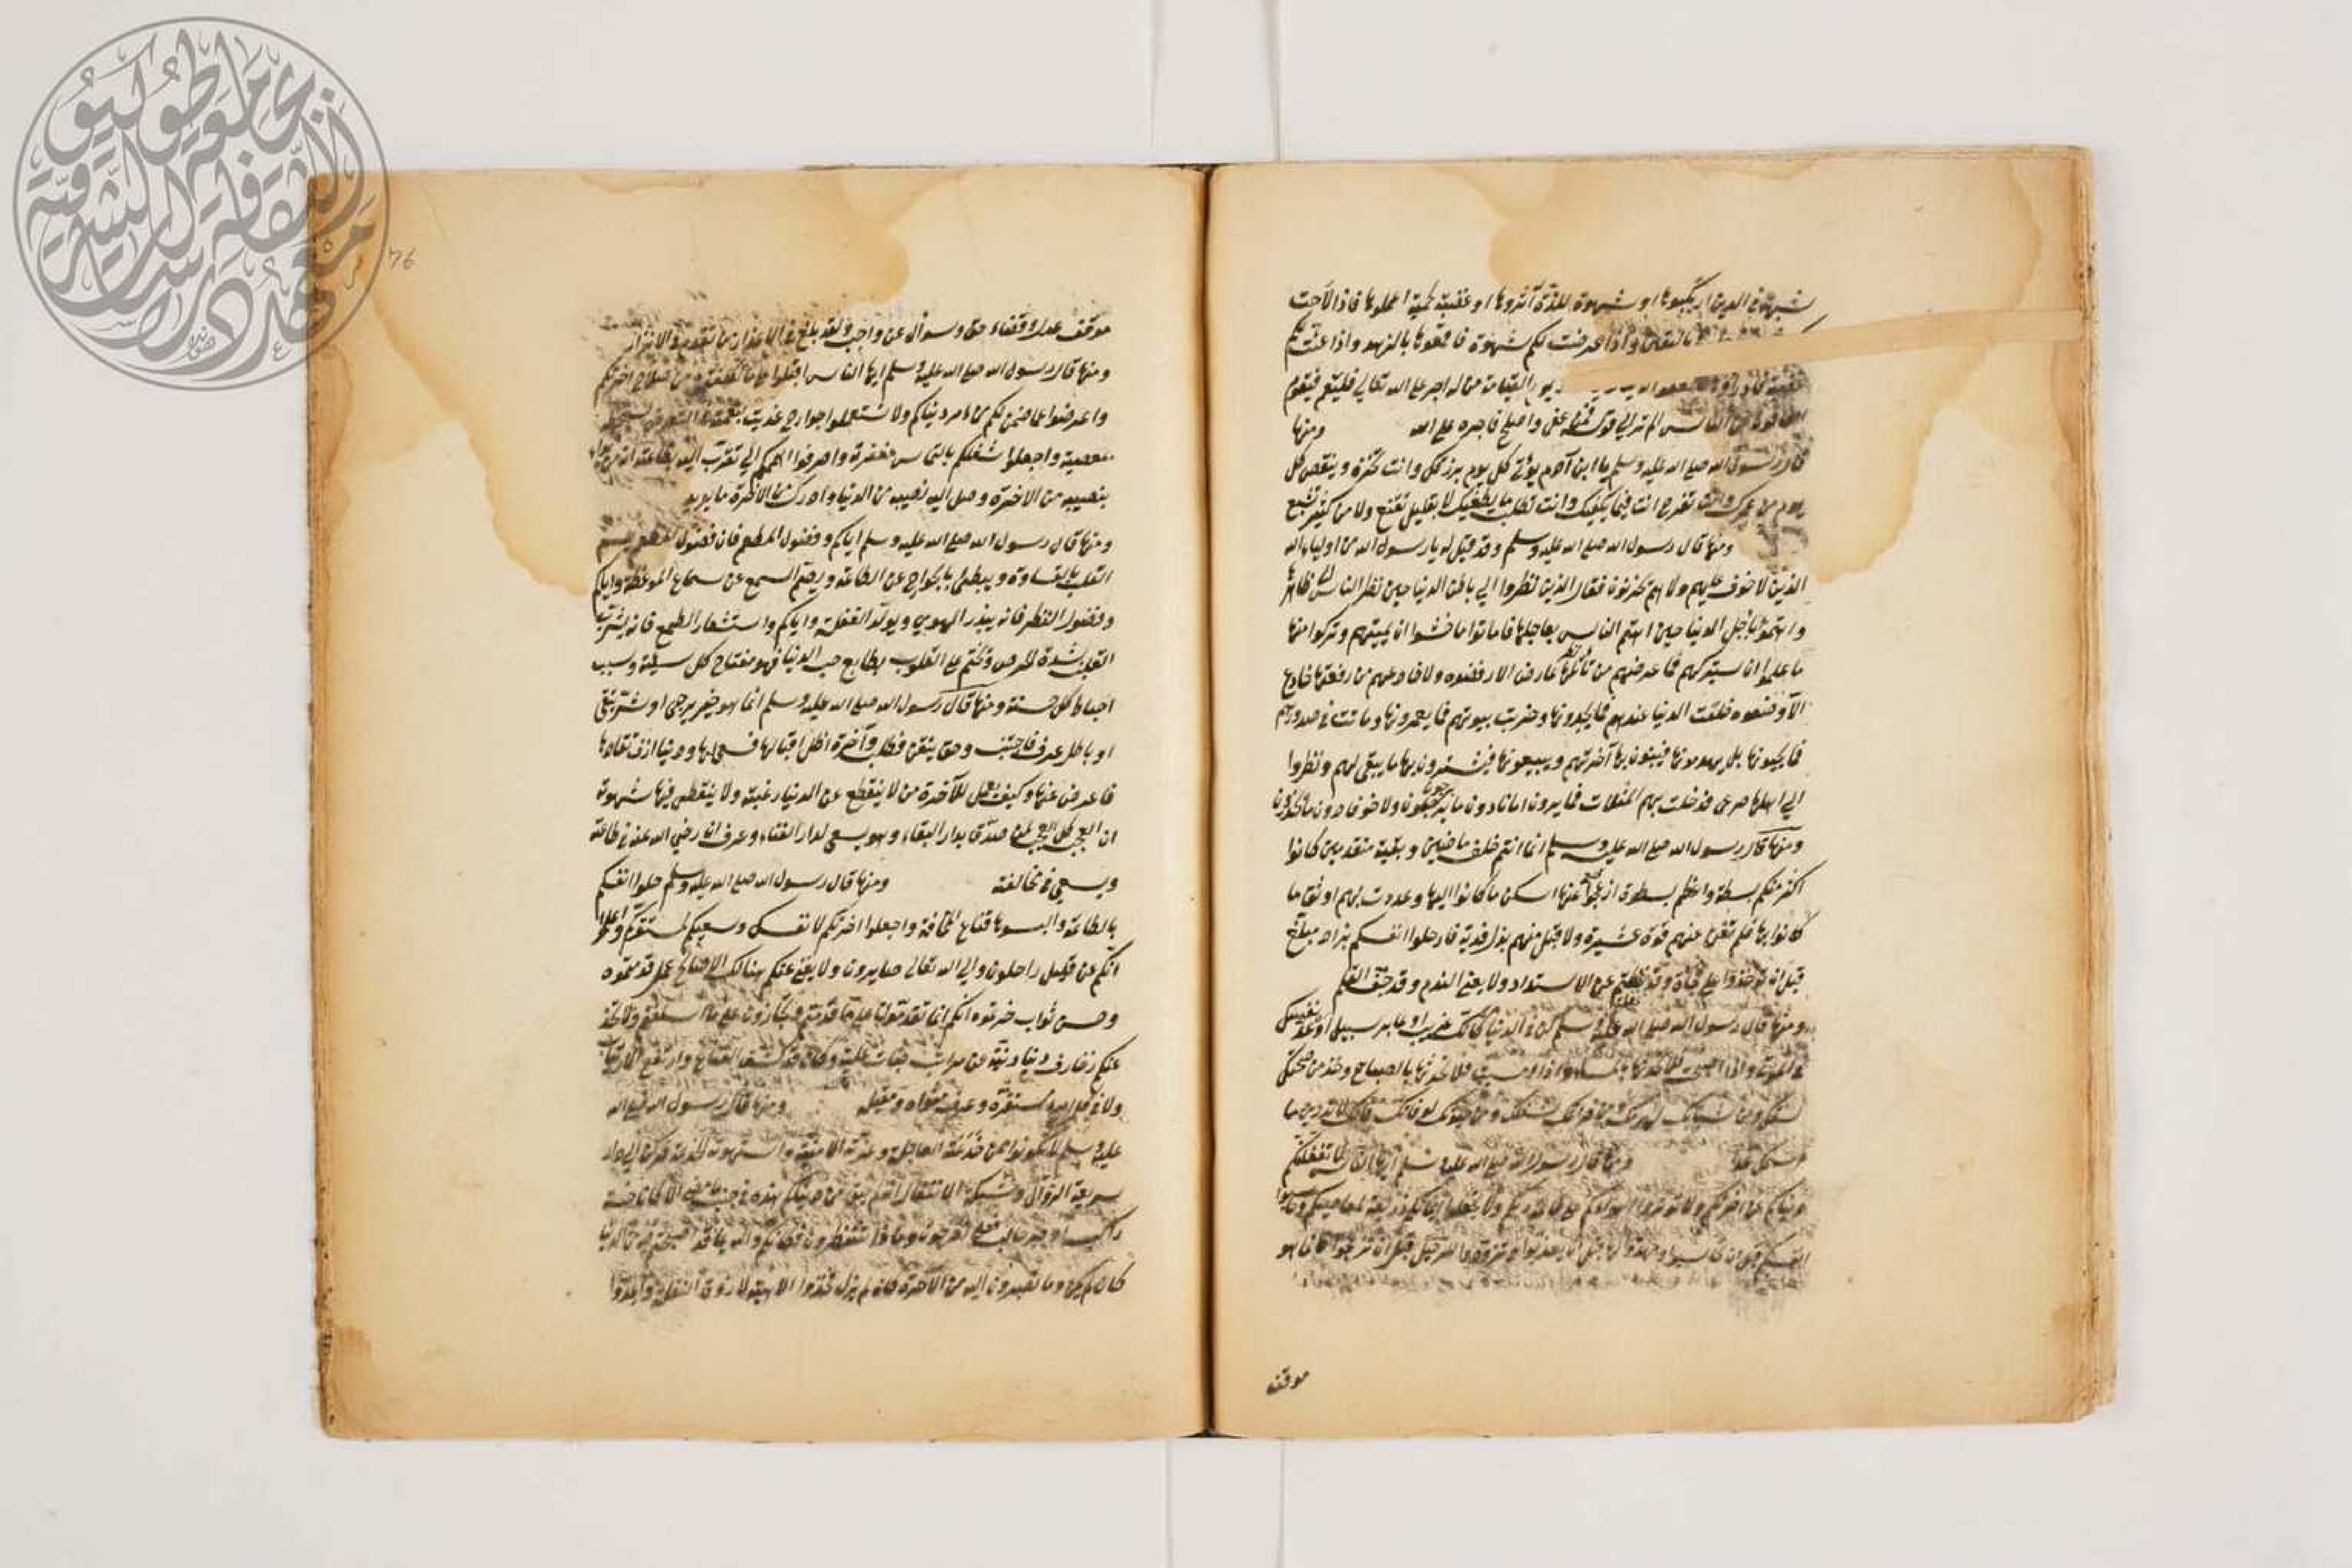 شبهة في الدين ارتكبوها او شهوة للذة آثروها او غضبية لحمية اعملوها فاذا لاحت
باليقين واذا عرضت لكم شهوة فاقمعوها بالزهد واذا عنت لكم
يوم القيامة من له اجر على الله تعالى فليقم فيقوم
العافون عن الناس الم تر الي قوله فمن عفى واصلح فاجره على الله ومنها
قال رسول الله صلى الله عليه وسلم يا ابن آدم يؤتى كل يوم برزقك وانت تحزن وينقص كل
يوم من عمرك وانت تفرح انت فيما يكفيك وانت تطلب ما يطغيك لا بقليل تقنع ولا من كثير تشبع
ومنها قال رسول الله صلى الله عليه وسلم وقد قيل له يا رسول الله من اولياء الله
الذين لا خوف عليهم ولا هم يحزنون فقال الذين نظروا الي باطن الدنيا حين نظر الناس الى ظاهرها
واهتموا بآجل الدنيا حين اهتم الناس بعاجلها فاماتوا ما خشوا ان يميتهم وتركوا منها
ما علموا ان سيتركهم فما عرضهم من نائلها عارض الا رفضوه ولا خادعهم من رفعتها خادع
الا وضعوه خلقت الدنيا عندهم فما يجددونها وخربت بيوتهم فما يعمرونها وماتت في صدورهم
فما يحيونها بل يهدمونها فيبنون بها آخرتهم ويبيعونها فيشترون بها ما يبقى لهم ونظروا
الي اهلها صرعى قد خلت بهم المثلات فما يرون امانا دون ما يرجون ولا خوفا دون ما يحذرون
ومنها قال رسول الله صلى الله عليه وسلم انما انتم خلف ماضين وبقية متقدمين كانوا
اكثر منكم بسطة واعظم سطوة ازعجوا عنها اسكن ما كانوا اليها وغدرت بهم اوثق ما
كانوا بها فلم تغن عنهم قوة عشيرة ولا قبل منهم بذل فدية فارحلوا انفسكم بزاد مبلغ
قبل ان توخذوا على فجاة وقد غفلتم عن الاستعداد ولا يغني الندم وقد جف القلم
ومنها قال رسول الله صلى الله عليه وسلم كن في الدنيا كانك غريب او عابر سبيل او عد نفسك
في الموتى واذا اصبحت فلا تحدثها بالمساء واذا امسيت فلا تحدثها بالصباح وخذ من صحتك
لسقمك ومن شبابك لهرمك ومن فراغك لشغلك ومن حيوتك لوفاتك فانك لا تدري ما
اسمك غدا ومنها قال رسول الله صلى الله عليه وسلم ايها الناس لا تشغلنكم
دنياكم عن اخرتكم ولا توثروا اهواءكم على طاعة ربكم ولا تجعلوا ايمانكم ذريعة لمعاصيكم وحاسبوا
انفسكم قبل ان تحاسبوا ومهدوا لها قبل ان تعذبوا وتزودوا للرحيل قبل ان تزعجوا فانما هو
موقف
76
موقف عدل وقضاء حق وسوال عن واجب ولقد بلغ في الاعذار من تقدم في الانذار
ومنها قال رسول الله صلى الله عليه وسلم ايها الناس اقبلوا على ما كلفتموه من صلاح اخرتكم
واعرضوا عما ضمن لكم من امر دنياكم ولا تستعملوا جوارح غذيت بنعمته في التعرض لسخطه
بمعصيته واجعلوا شغلكم بالتماس مغفرته واصرفوا هممكم الي تقرب اليه بطاعته انه من بدأ
بنصيبه من الاخرة وصل اليه نصيبه من الدنيا وادرك من الاخرة ما يريد
ومنها قال رسول الله صلى الله عليه وسلم اياكم وفضول المطعم فان فضول المطعم يسم
القلب بالقساوة ويبطئ بالجوارح عن الطاعة ويصم السمع عن سماع الموعظة واياكم
وفضول النظر فانه يبذر الهوي ويولد الغفلة واياكم واستشعار الطمع فانه يشرب
القلب شدة الحرص ويختم على القلوب بطابع حب الدنيا فهو مفتاح كل سيئة وسبب
احباط كل حسنة ومنها قال رسول الله صلى الله عليه وسلم انما هو خير يرجى او شر يتقى
او باطل عرف فاجتنب وحق يتقن فطلب وآخرة اظل اقبالها فسعى لها ودنيا ازف نفادها
فاعرض عنها وكيف يعمل للآخرة من لا ينقطع عن الدنيا رغبته ولا ينقضي فيها شهوته
ان العجب كل العجب لمن صدق بدار البقاء وهو يسعى لدار الفناء وعرف ان رضي الله عنه في طاعته
ويسعى في مخالفته ومنها قال رسول الله صلى الله عليه وسلم حلوا انفسكم
بالطاعة والبسوها قناع المخافة واجعلوا اخرتكم لانفسكم وسعيكم لمستقركم واعلموا
انكم عن قليل راحلون والي الله تعالى صايرون ولا يغني عنكم هنالك الا صالح عمل قدمتموه
وحسن ثواب حزتموه انكم انما تقدمون على ما قدمتم وتجازون على ما اسلفتم ولا تخدعنكم
زخارف دنيا دنية عن مراتب جنات علية وكان قد كشف القناع وارتفع الارتياب
ولاقى كل امرء مستقره وعرف مثواه ومقيله ومنها قال رسول الله صلى الله
عليه وسلم لا تكونوا ممن خدعته العاجلة وغرته الامنية واستهوته الخدعة فركن الي دار
سريعة الزوال وشيكة الانتقال انه لم يبق من دنياكم هذه في جنب ما مضى الا كاناخة
راكب او صر حالب فعلى ما تعرجون وما ذا تنتظرون فكانكم والله بما قد اصبحتم فيه من الدنيا
كان لم يكن وما تصيرون اليه من الآخرة كان لم يزل فخذوا الاهبة لازوف النقلة واعدوا